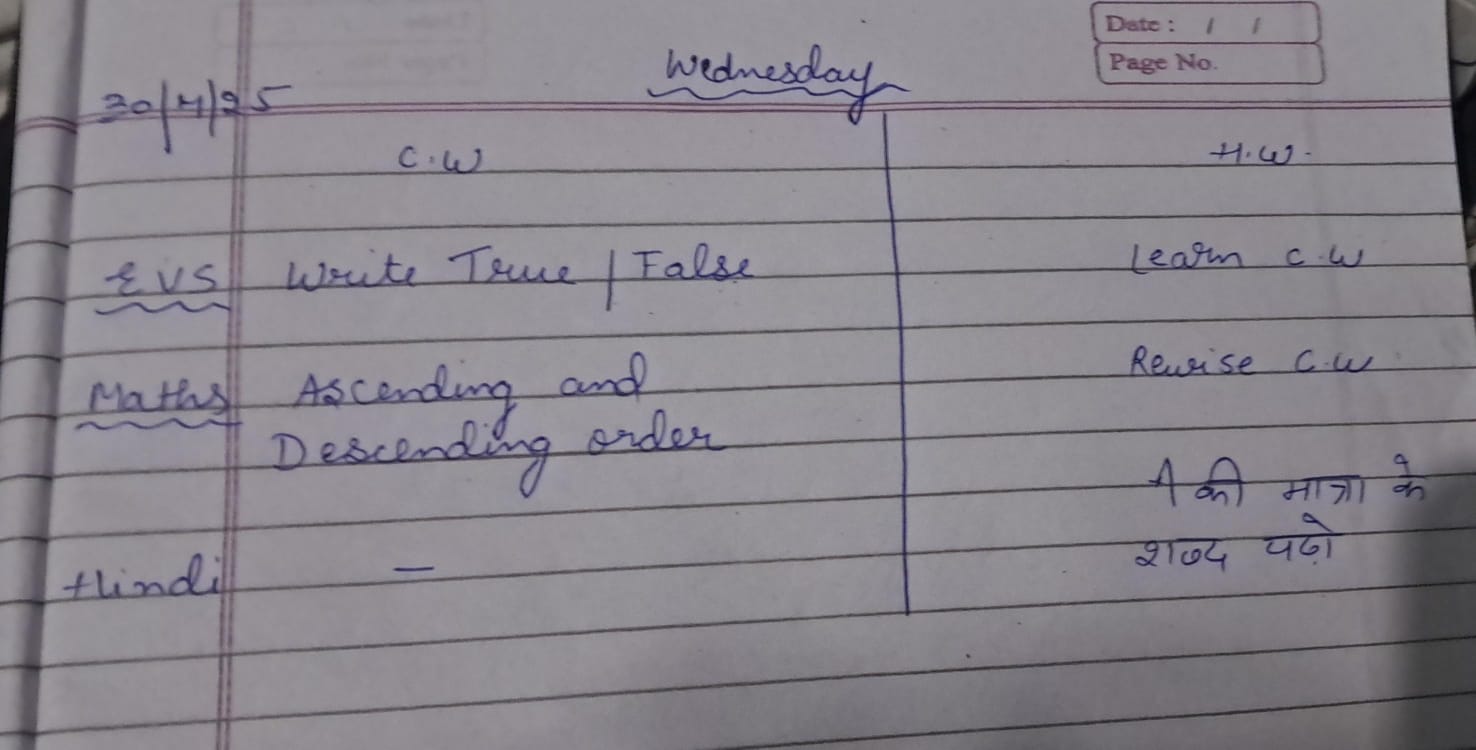 Date : / /
Page No.
Wednesday
30/4/25
C.W H.W.
EVS Write True / False Learn C.W
Maths Ascending and Revise C.W
Descending order
की मात्रा के
Hindi — शब्द पढ़ो